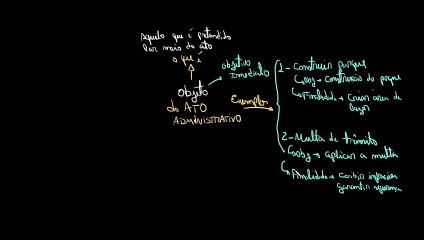 Aquele que é pretendido
Por meio do ato
o que é
objetivo
Imediato
objeto
do ATO
ADMINISTRATIVO
Exemplos
1 - Construir parque
obj → Construção do parque
Finalidade → Criar área de
lazer
2 - Multa de trânsito
obj → aplicar a multa
Finalidade → Coibir infrações
garantir segurança